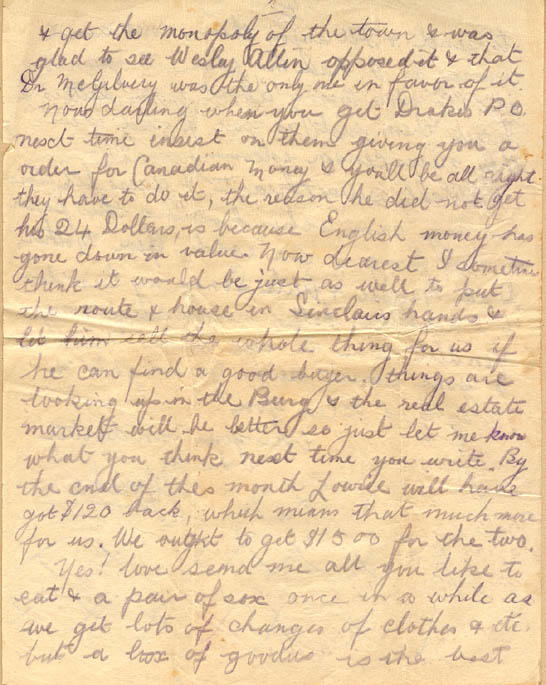 & get the monopoly of the town & was
glad to see Wesley Allin opposed it & that
Dr McGilvery was the only one in favor of it.
Now darling when you get Drakes P.O.
next time insist on them giving you a
order for Canadian Money & you'll be all right
they have to do it, the reason he did not get
his 24 Dollars, is because English money has
gone down in value. Now dearest I sometime
think it would be just as well to put
the route & house in Sinclairs hands &
let him sell the whole thing for us if
he can find a good buyer. things are
looking up in the Burg & the real estate
market will be better so just let me know
what you think next time you write. By
the end of this month Lowrie will have
got $120 back, which means that much more
for us. We ought to get $1500 for the two.
Yes! love send me all you like to
eat & a pair of sox once in a while as
we get lots of changes of clothes & etc.
but a box of goodies is the best